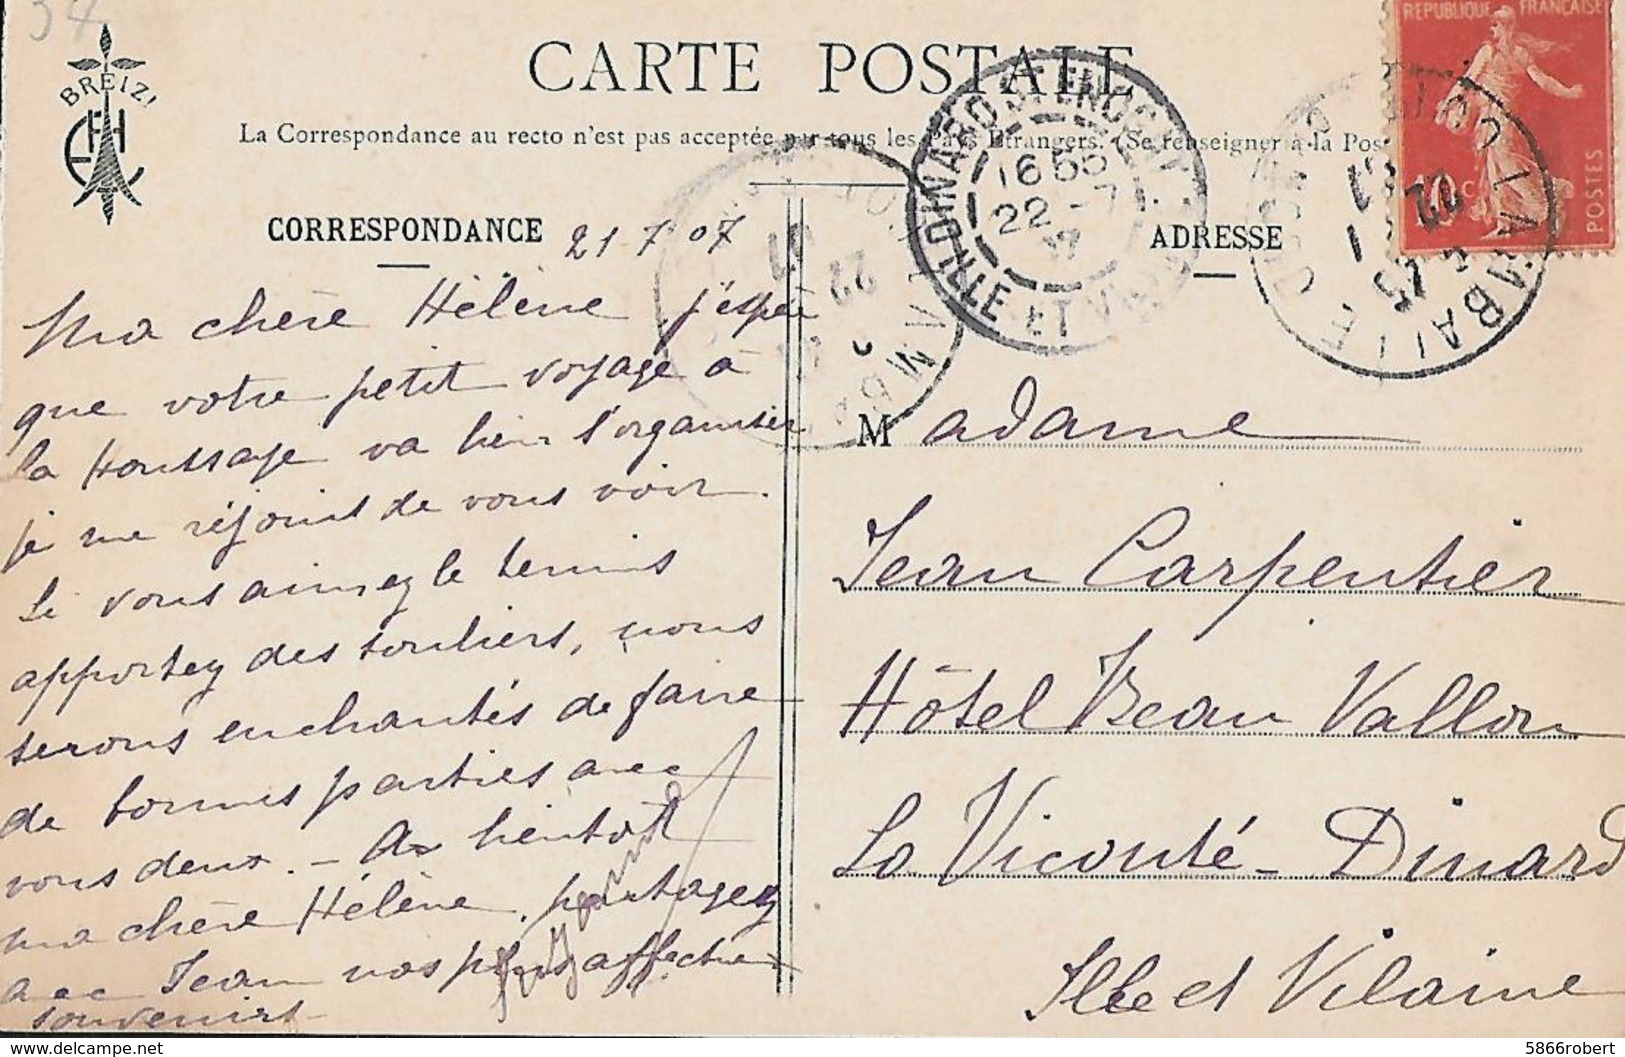 34
BREIZ!
EHF
CARTE POSTALE
La Correspondance au recto n'est pas acceptée par tous les Pays Étrangers. (Se renseigner à la Pos
REPUBLIQUE FRANÇAISE
10 c.
POSTES
DINARD ST ENOGAT
16 55
22 - 7
ILLE ET VILAINE
LAMBALLE
COTES DU NORD
22
CORRESPONDANCE
21 7 07
ADRESSE
Ma chère Hélène j'espère
que votre petit voyage à
la Houssaye va bien s'organiser
je me réjouis de vous voir.
Si vous aimez le tennis
apportez des souliers, nous
serons enchantés de faire
de bonnes parties avec
vous deux. – A bientôt
ma chère Hélène, partagez
avec Jean nos plus affectueux
souvenirs
Madame
Jean Carpentier
Hôtel Beau Vallon
La Vicomté - Dinard
Ille et Vilaine
5866robert